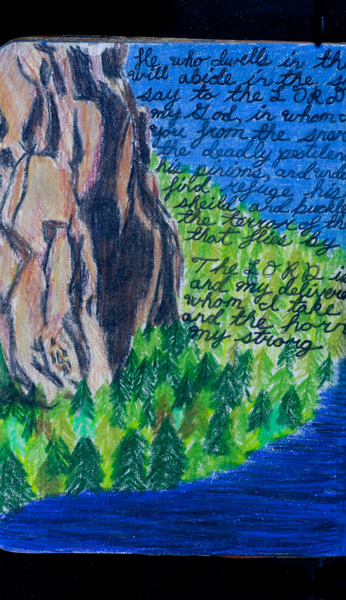 He who dwells in the
will abide in the s
say to the LORD
my God, in whom
you from the snar
the deadly pestilen
his pinions, and unde
find refuge his
sheild and buckle
the terror of th
that flies by
The LORD is
and my delivere
whom I take
and the horn
my strong